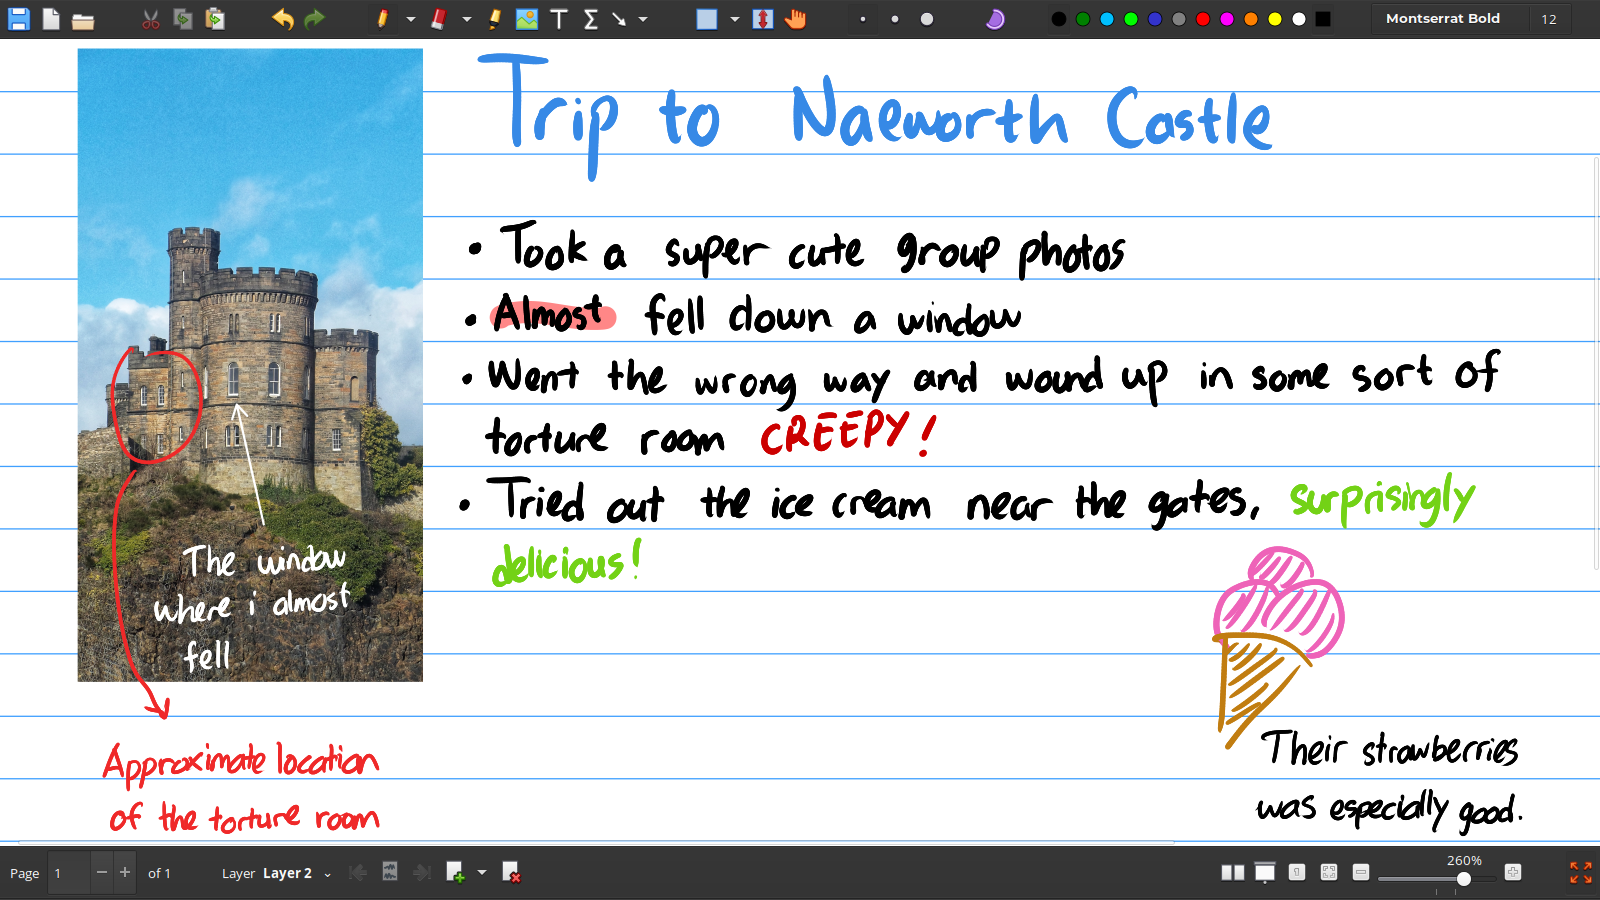 Montserrat Bold 12
Trip to Naeworth Castle
• Took a super cute group photos
• Almost fell down a window
• Went the wrong way and wound up in some sort of
torture room CREEPY!
• Tried out the ice cream near the gates, surprisingly
delicious!
The window
where i almost
fell
Approximate location
of the torture room
Their strawberries
was especially good.
Page 1 of 1 Layer Layer 2 260%